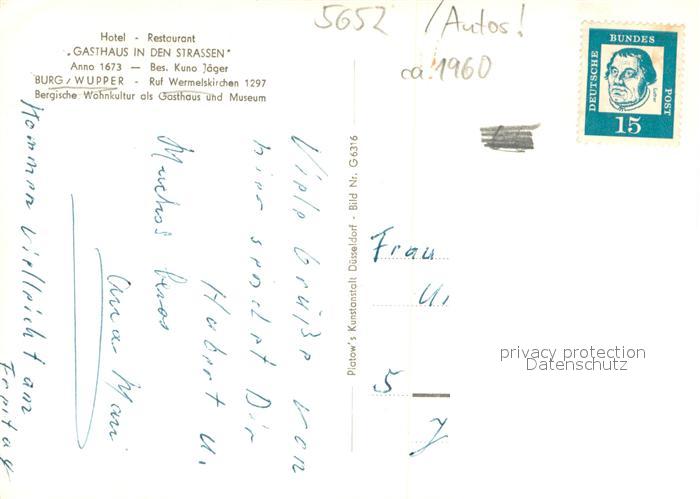 Hotel - Restaurant
„GASTHAUS IN DEN STRASSEN"
Anno 1673 — Bes. Kuno Jäger
BURG/WUPPER - Ruf Wermelskirchen 1297
Bergische Wohnkultur als Gasthaus und Museum
5652 /Autos!
ca. 1960
DEUTSCHE BUNDES POST
Luther
15
Viele Grüße von
hier sendet Dir
Hubert u.
Muchos besos
Anna-Mari
Kommen vielleicht am
Freitag
Platow's Kunstanstalt Düsseldorf - Bild Nr. G 6316
Frau
U.
5
J
privacy protection
Datenschutz